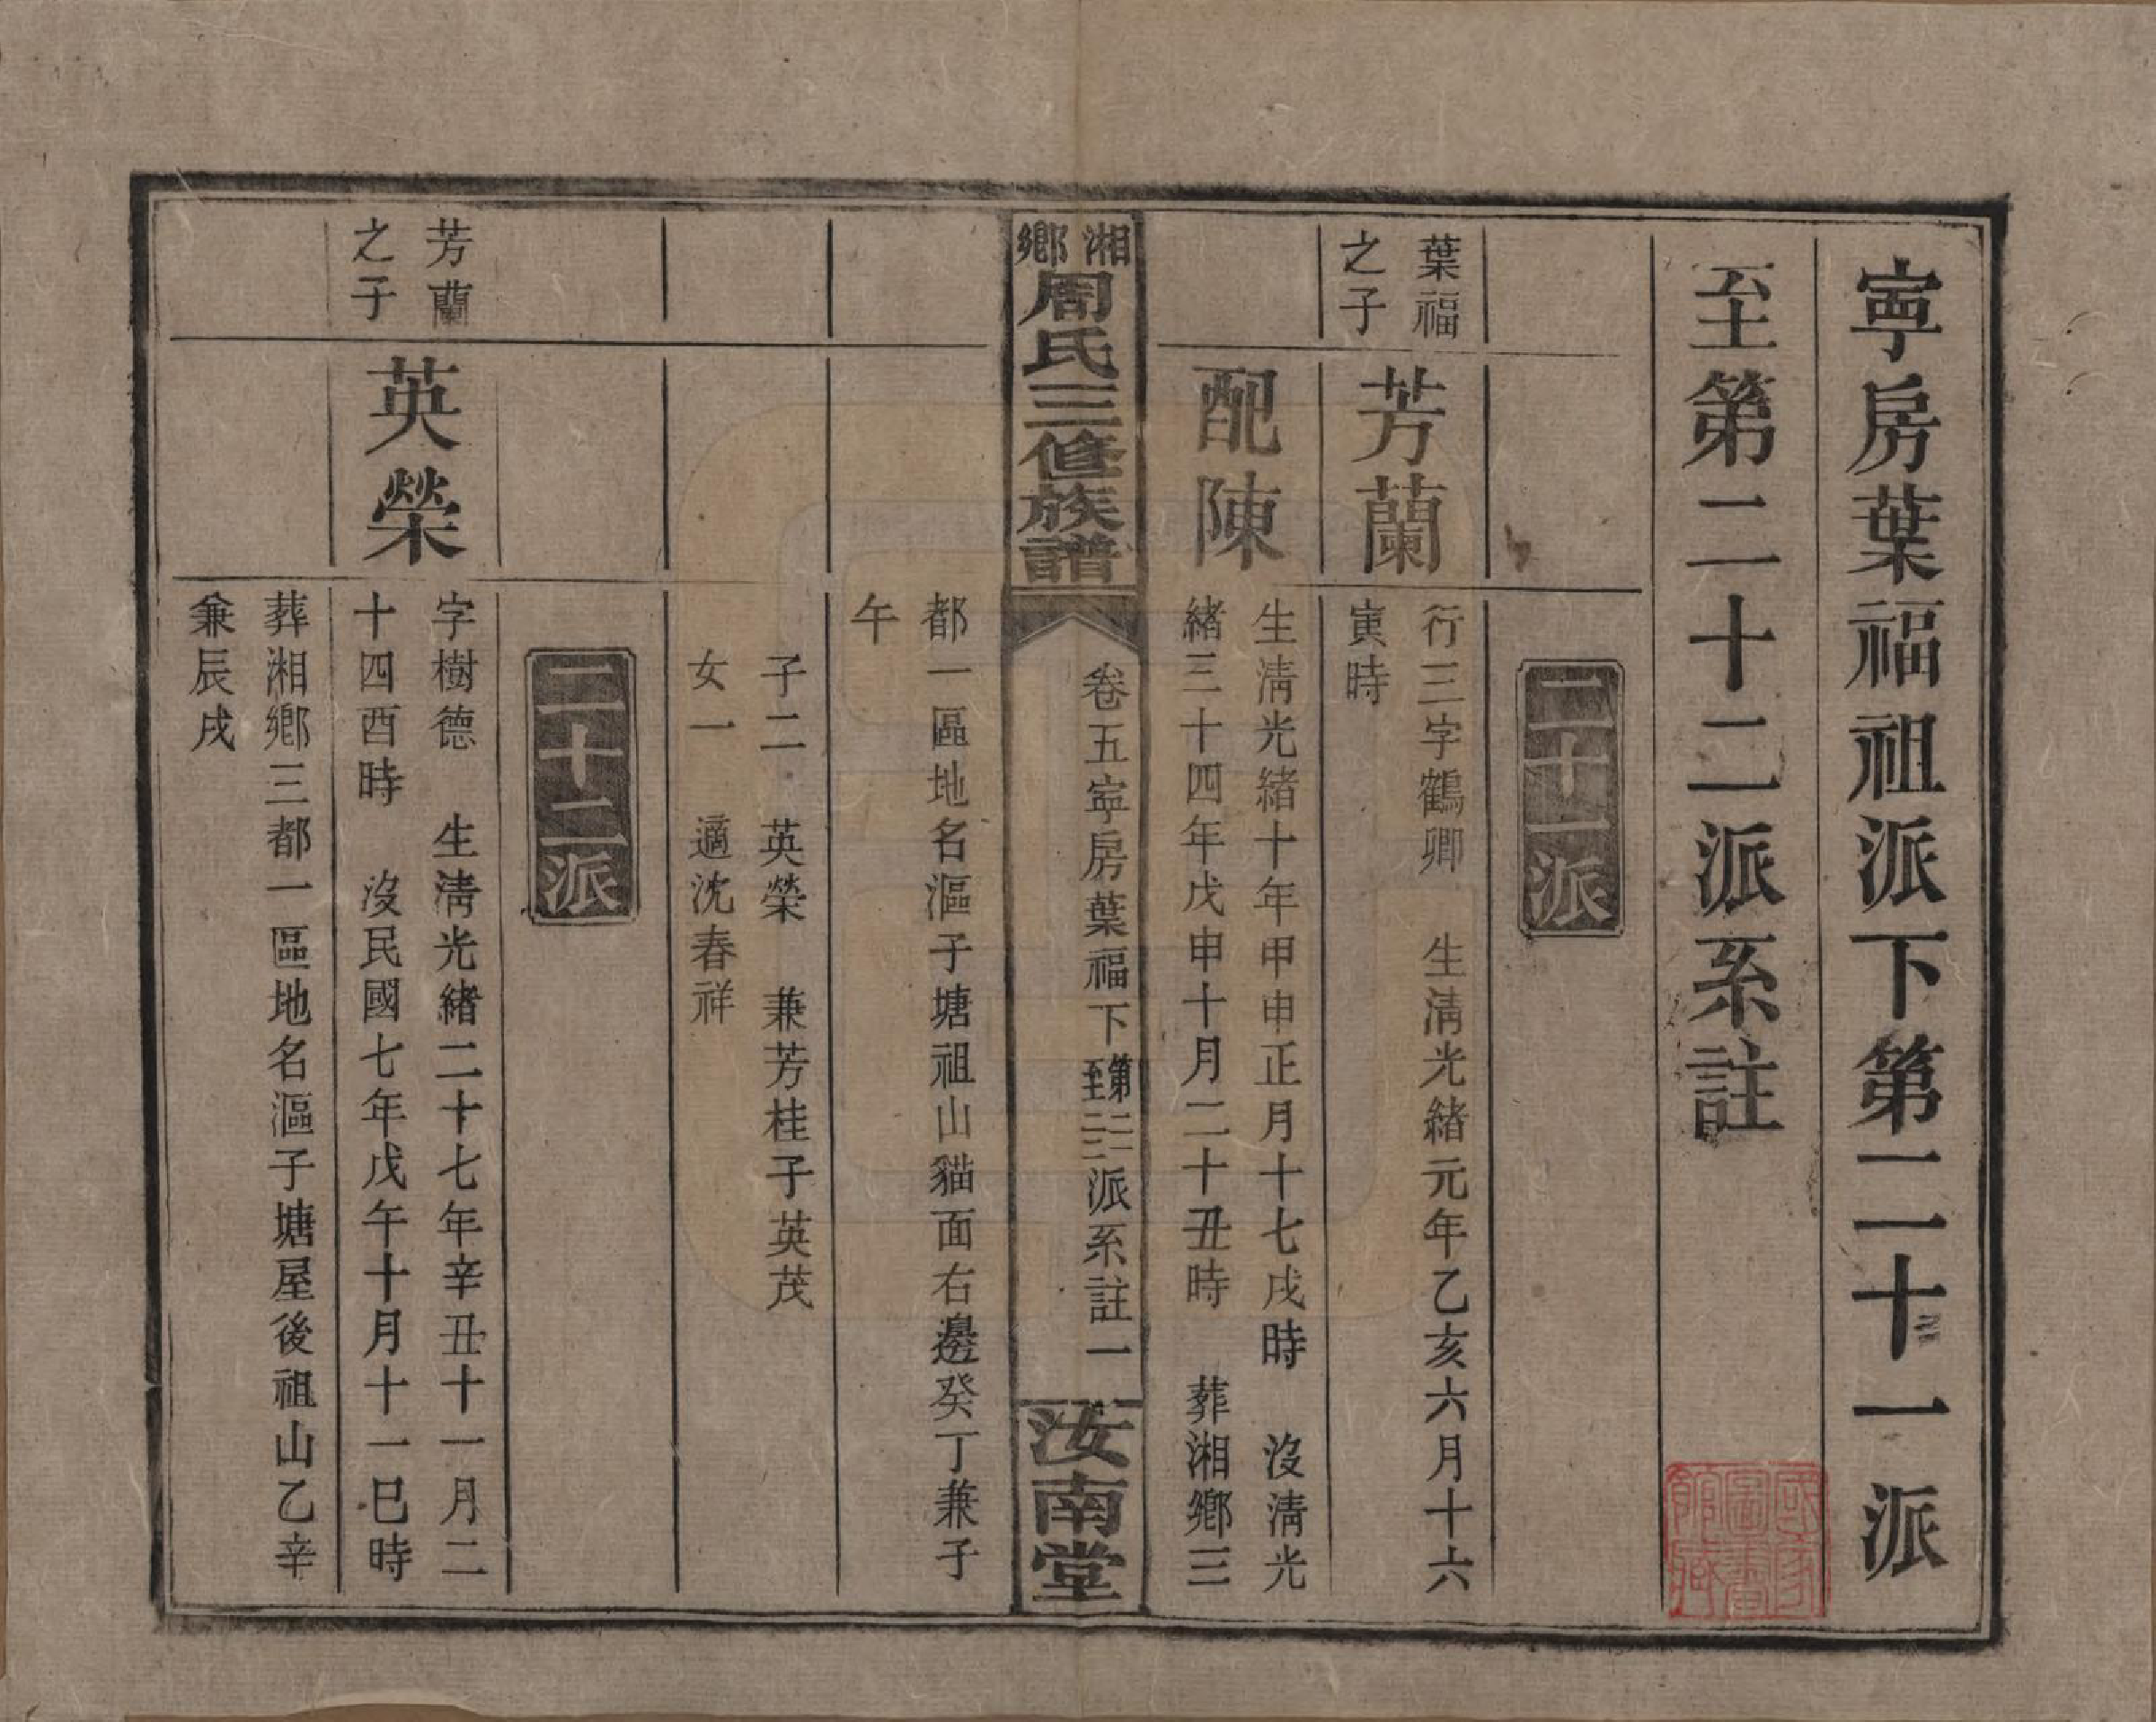 寕房葉福祖派下第二十一派
至第二十二派系註
二十一派
葉福
之子
芳蘭
行三字鶴卿　生淸光緒元年乙亥六月十六
寅時
配陳
生淸光緒十年甲申正月十七戌時　沒淸光
緒三十四年戊申十月二十丑時　葬湘鄉三
湘鄉
周氏三修族譜
卷五寕房葉福下第二一至二二派系註一
汝南堂
都一區地名漚子塘祖山貓面右邊癸丁兼子
午
子二　英榮　兼芳桂子英茂
女一　適沈春祥
二十二派
芳蘭
之子
英榮
字樹德　生淸光緒二十七年辛丑十一月二
十四酉時　沒民國七年戊午十月十一巳時
葬湘鄉三都一區地名漚子塘屋後祖山乙辛
兼辰戌
國家圖書館藏